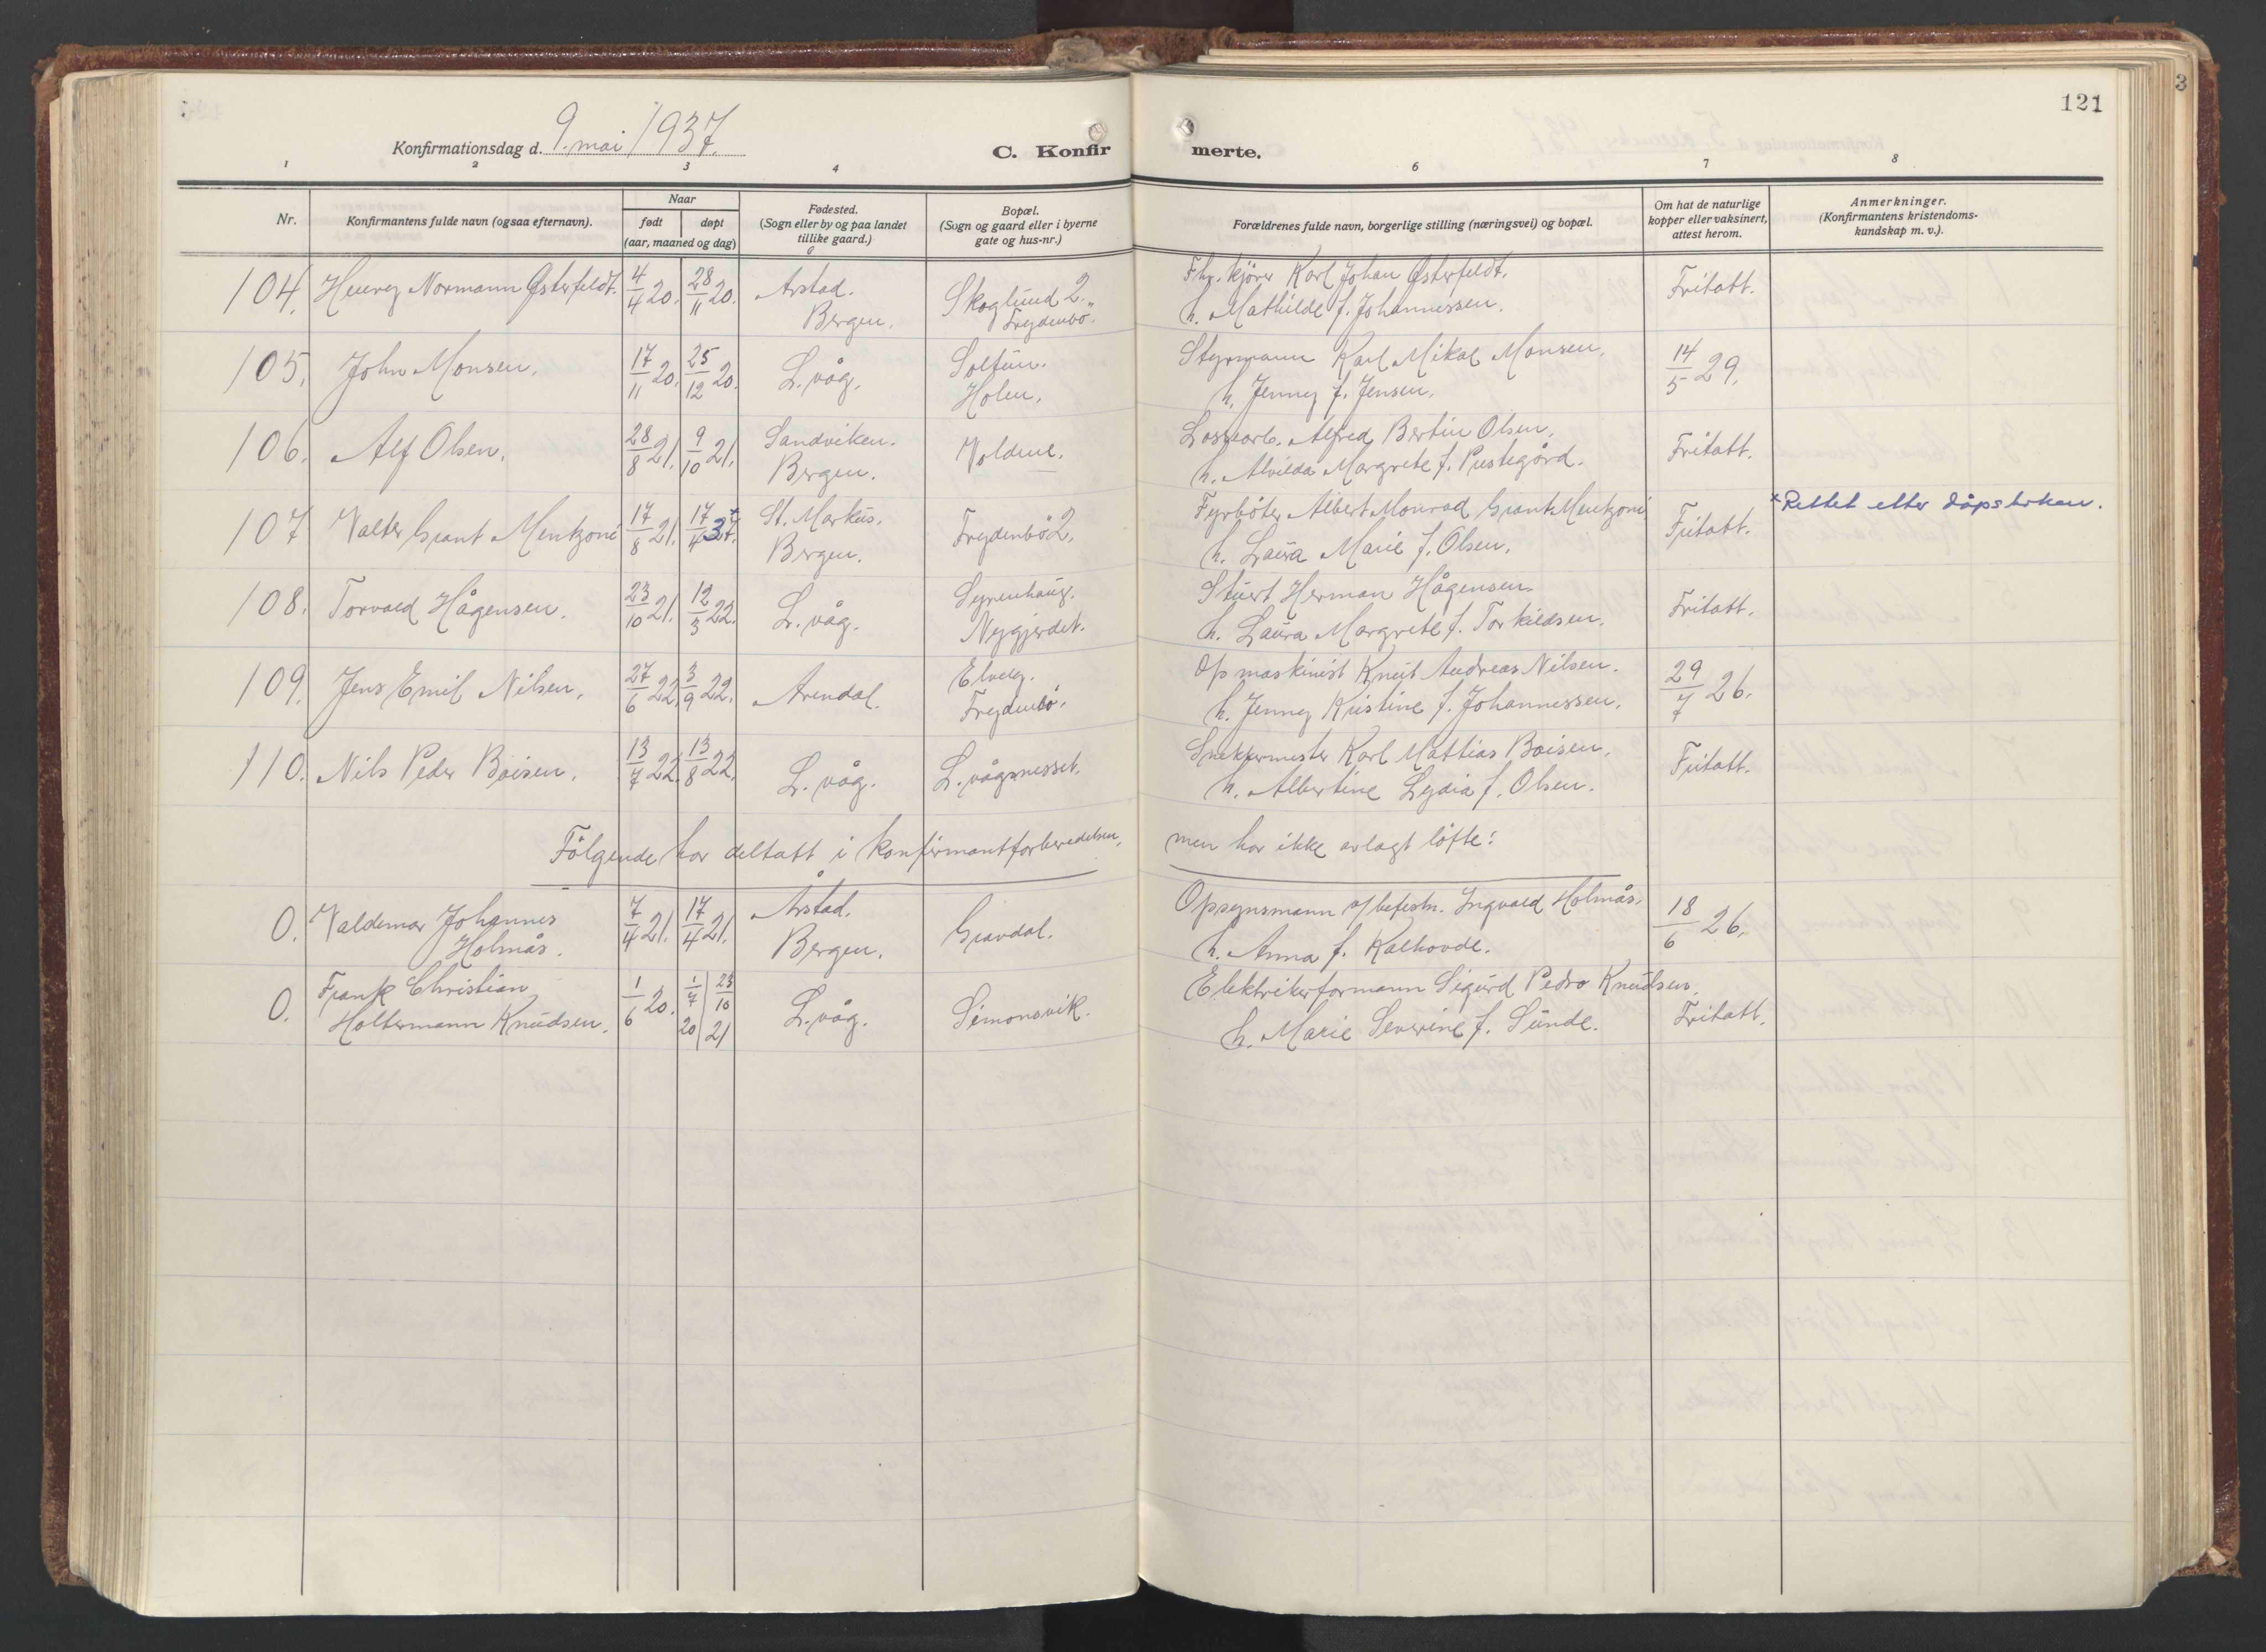 121
3
Konfirmationsdag d. 9. mai 1937.
C. Konfir merte.
1 2 3 4 6 7 8
Nr.
Konfirmantens fulde navn (ogsaa efternavn).
Naar
født døpt
(aar, maaned og dag)
Fødested.
(Sogn eller by og paa landet
tillike gaard.)
Bopæl.
(Sogn og gaard eller i byerne
gate og hus-nr.)
Forældrenes fulde navn, borgerlige stilling (næringsvei) og bopæl.
Om hat de naturlige
kopper eller vaksinert,
attest herom.
Anmerkninger.
(Konfirmantens kristendoms-
kundskap m. v.).
104. Henry Normann Østerfeldt. 4/4 20. 28/11 20. Årstad. Skoglund 2. Fhv. kjører Karl Johan Østerfeldt. Fritatt.
Bergen. Frydenbö. h. Mathilde f. Johannessen.
105. John Monsen. 17/11 20. 25/12 20. L. våg. Soltun. Styrmann Karl Mikal Monsen. 14/5 29.
Holen. h. Jenny f. Jensen.
106. Alf Olsen. 28/8 21. 9/10 21. Sandviken. Voldene. Lossearb. Alfred Bertin Olsen. Fritatt.
Bergen. h. Alvilda Margrete f. Prestegård.
107 Valter Grant Mentzoni 17/8 21. 17/4 37.* St. Markus. Frydenbö 2. Fyrböter Albert Monrad Grant Mentzoni Fritatt. * Rettet etter dåpsboken.
Bergen. h. Laura Marie f. Olsen.
108. Torvald Hågensen. 23/10 21. 12/3 22. L. våg. Syrenhaug. Stuert Herman Hågensen. Fritatt.
Nygjerdet. h. Laura Margrete f. Torkildsen.
109. Jens Emil Nilsen. 27/6 22. 3/9 22. Arendal. Elvely. Op maskinist Knut Andreas Nilsen. 29/7 26.
Frydenbö. h. Jenny Kristine f. Johannessen.
110. Nils Peder Boisen. 13/7 22. 13/8 22. L. våg. L. vågsnesset. Snekkermester Karl Mattias Boisen. Fritatt.
h. Albertine Lydia f. Olsen.
Følgende har deltatt i konfirmantforberedelsen, men har ikke avlagt löfte:
0. Valdemar Johannes 7/4 21. 17/4 21. Årstad. Gravdal. Opsynsmann v/befestn. Ingvald Holmås. 18/6 26.
Holmås. Bergen. h. Anna f. Kalhovde.
0. Frank Christian 1/6 20. 1/7 20 / 23/10 21 L. våg. Simonsvik. Elektrikerformann Sigurd Pedro Knudsen. Fritatt.
Holtermann Knudsen. h. Marie Severine f. Sunde.